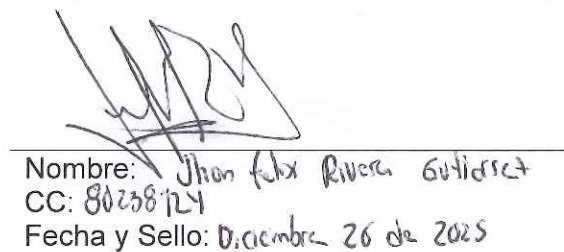 Nombre: Jhon felix Rivera Gutierrez
CC: 80238724
Fecha y Sello: Diciembre 26 de 2025